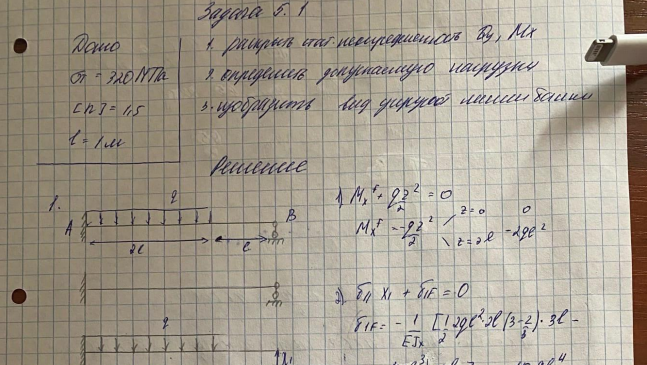 Задача 5.1
Дано
σт = 320 МПа
[n] = 1,5
l = 1 м
1. раскрыть стат. неопределенность Qy, Mx
2. определить допускаемую нагрузку
3. изобразить вид упругой линии балки
Решение
1.
q
A
B
2l
l
1) Mx^F + qz²/2 = 0
Mx^F = -qz²/2
z=0
0
z=2l
-2ql²
2) δ11 X1 + δ1F = 0
δ1F = - 1/EJx [1/2 2ql² · 2l (3-2/3) · 3l -
q
X1